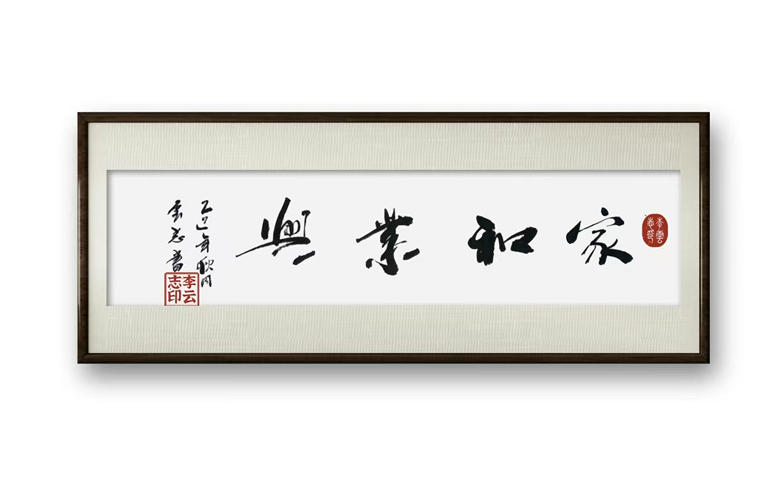 家和業興
乙巳年秋月
雲志書
李云志印